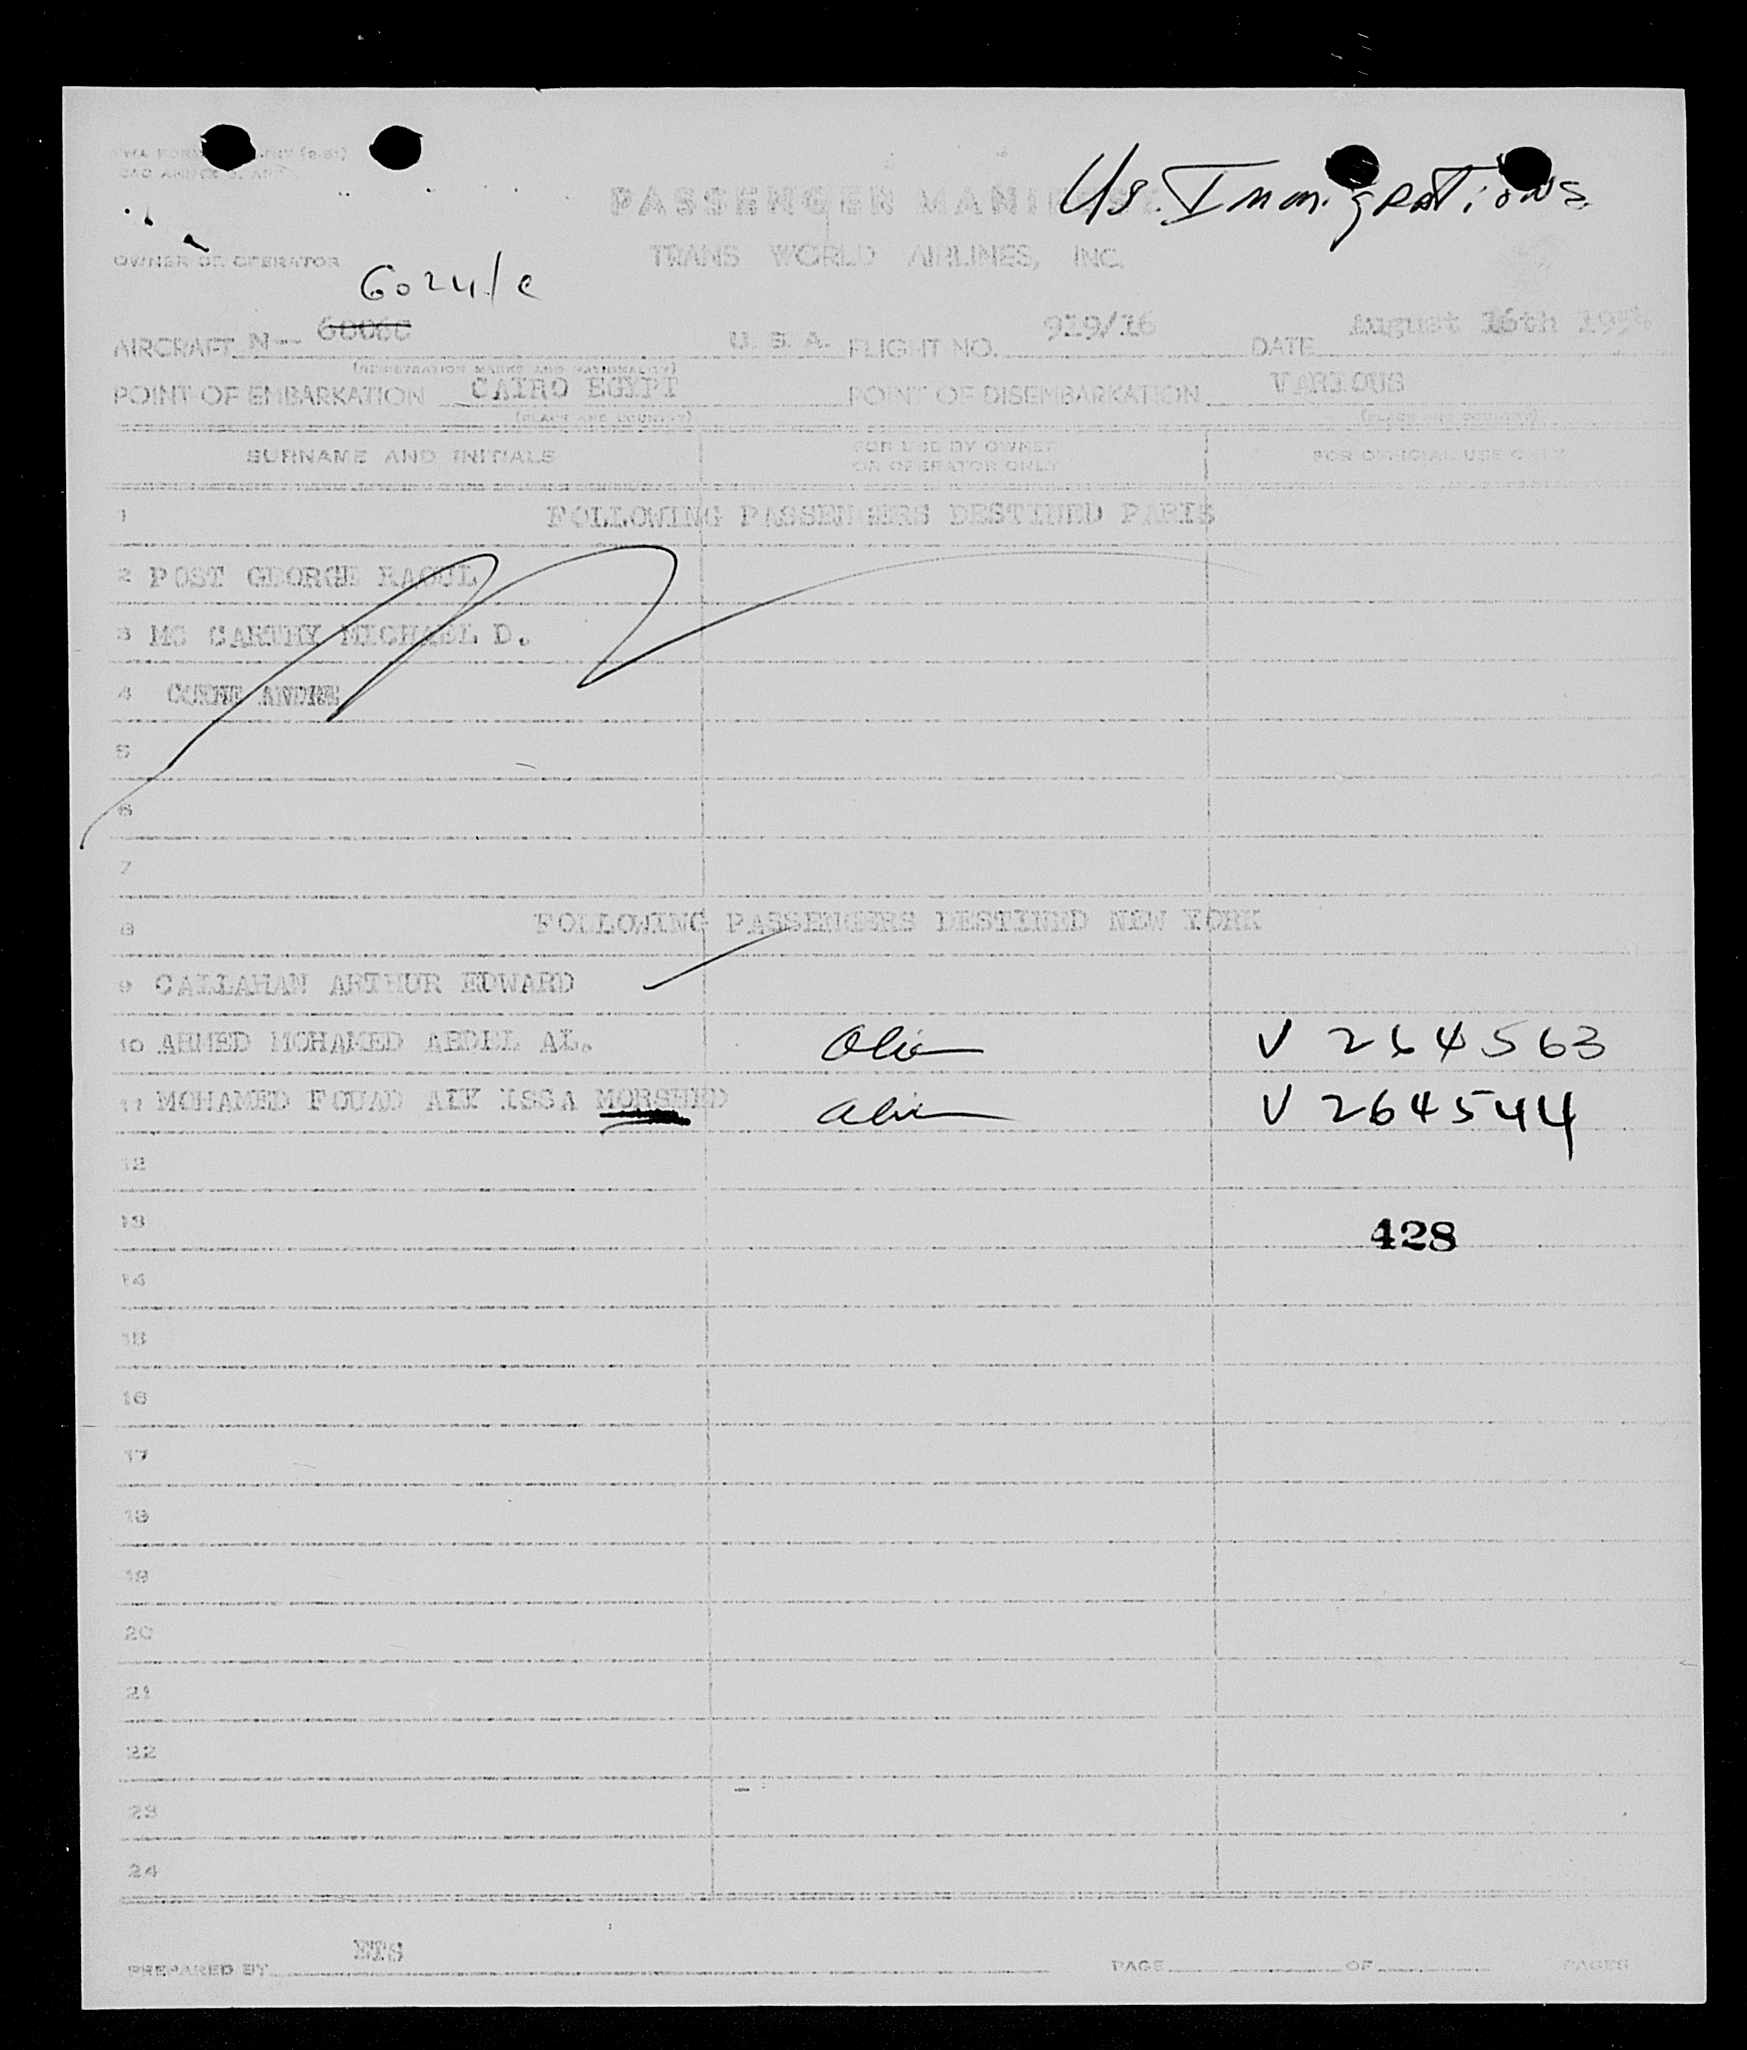 PASSENGER MANIFEST
US. Immigrations
TRANS WORLD AIRLINES, INC.
OWNER OR OPERATOR
6024/c
AIRCRAFT N-- 6006C U. S. A. FLIGHT NO. 919/16 DATE August 16th
(REGISTRATION MARKS AND NATIONALITY)
POINT OF EMBARKATION CAIRO EGYPT POINT OF DISEMBARKATION VARIOUS
(PLACE AND COUNTRY) (PLACE AND COUNTRY)
SURNAME AND INITIALS FOR USE BY OWNER OR OPERATOR ONLY FOR OFFICIAL USE ONLY
1 FOLLOWING PASSENGERS DESTINED PARIS
2 POST GEORGE RAOUL
3 MC CARTHY MICHAEL D.
4 ANDRE
5
6
7
8 FOLLOWING PASSENGERS DESTINED NEW YORK
9 CALLAHAN ARTHUR EDWARD
10 AHMED MOHAMED ABDEL AL. Alien V 264563
11 MOHAMED FOUAD ALY ISSA MORSHED Alien V 264544
12
13 428
14
15
16
17
18
19
20
21
22
23
24
PREPARED BY ETS PAGE OF PAGES